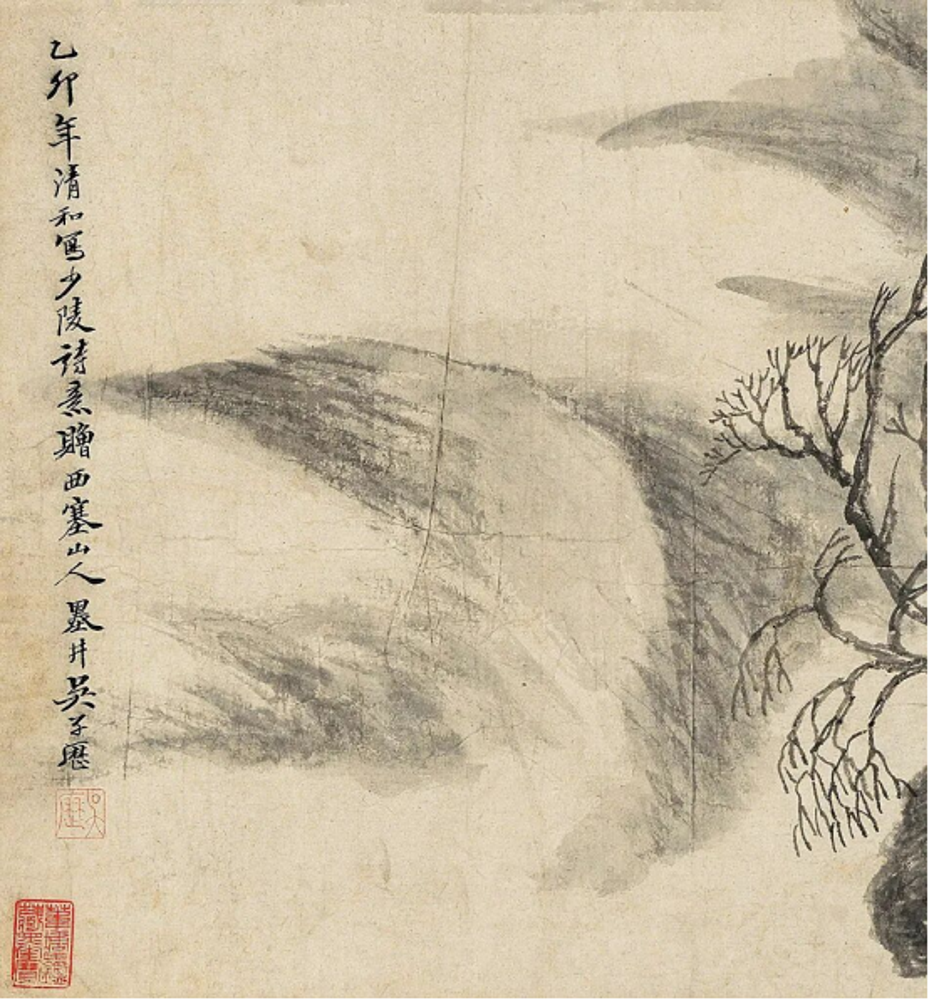 乙卯年清和寫少陵詩意贈西塞山人墨井吳子歷
吳歷